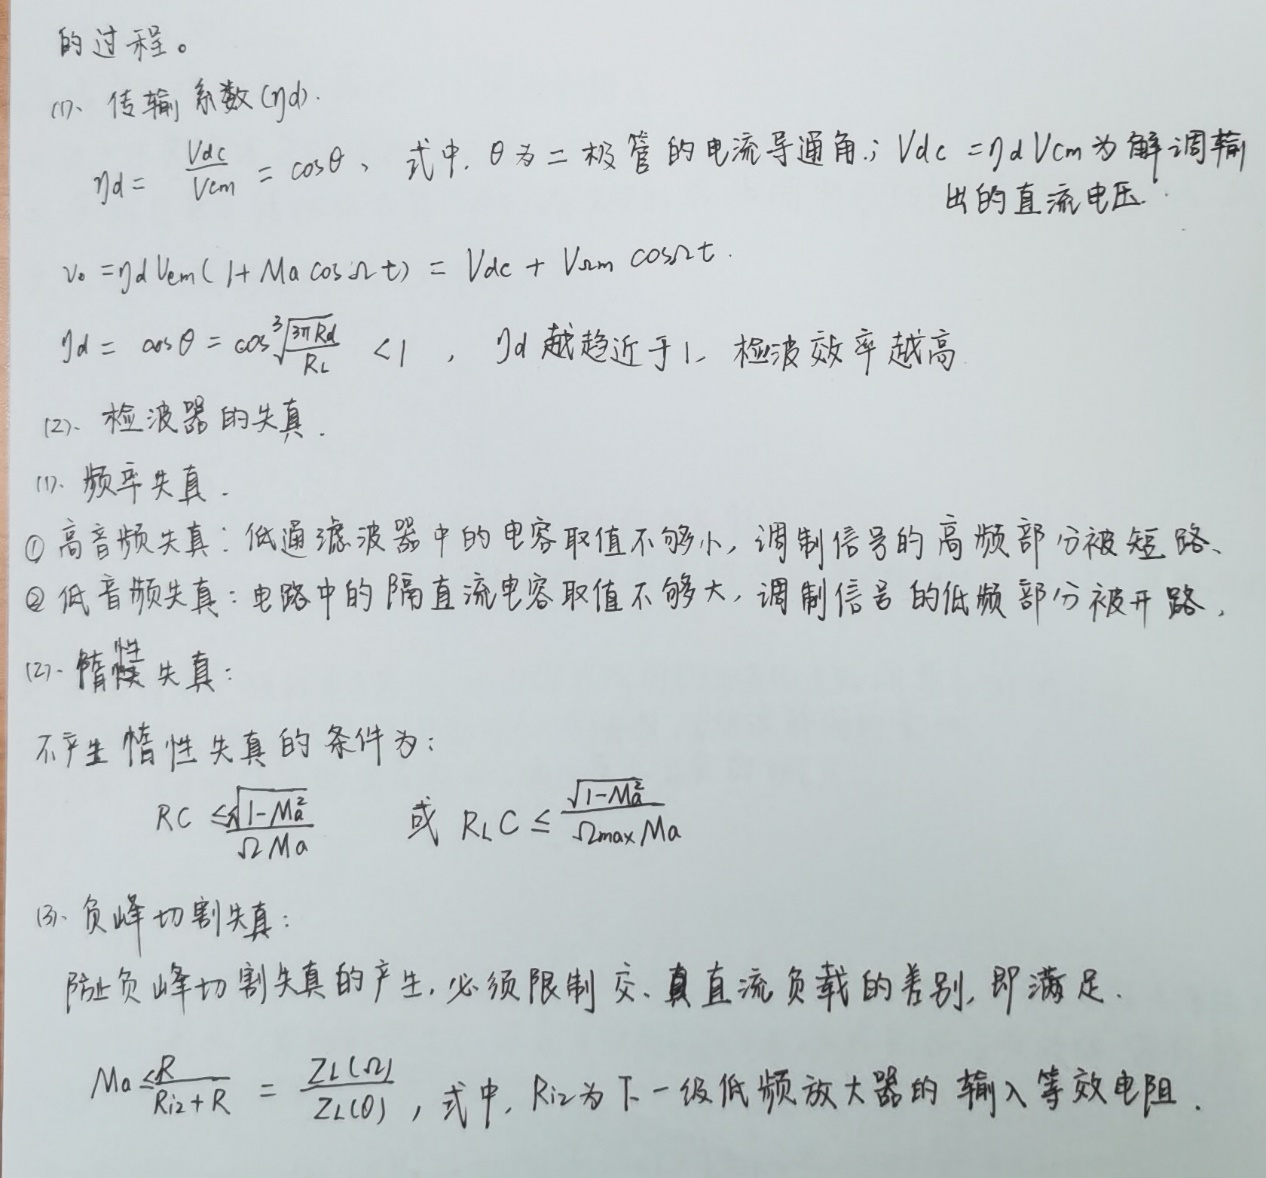 的过程。
(1)、传输系数(ηd).
ηd = Vdc/Vcm = cosθ、式中,θ为二极管的电流导通角;Vdc = ηdVcm为解调输
出的直流电压.
v₀ = ηdVcm(1+Ma cosΩt) = Vdc + VΩm cosΩt.
ηd = cosθ = cos³√(3πRd/RL) < 1 , ηd越趋近于1、检波效率越高
(2)、检波器的失真.
(1)、频率失真.
① 高音频失真:低通滤波器中的电容取值不够小,调制信号的高频部分被短路、
② 低音频失真:电路中的隔直流电容取值不够大,调制信号的低频部分被开路,
(2)、惰性失真:
不产生惰性失真的条件为:
RC ≤ √(1-Ma²)/(ΩMa) 或 RLC ≤ √(1-Ma²)/(ΩmaxMa)
(3)、负峰切割失真:
防止负峰切割失真的产生,必须限制交、直流负载的差别,即满足.
Ma ≤ R/(Ri2+R) = ZL(Ω)/ZL(0) , 式中,Ri2为下一级低频放大器的输入等效电阻.